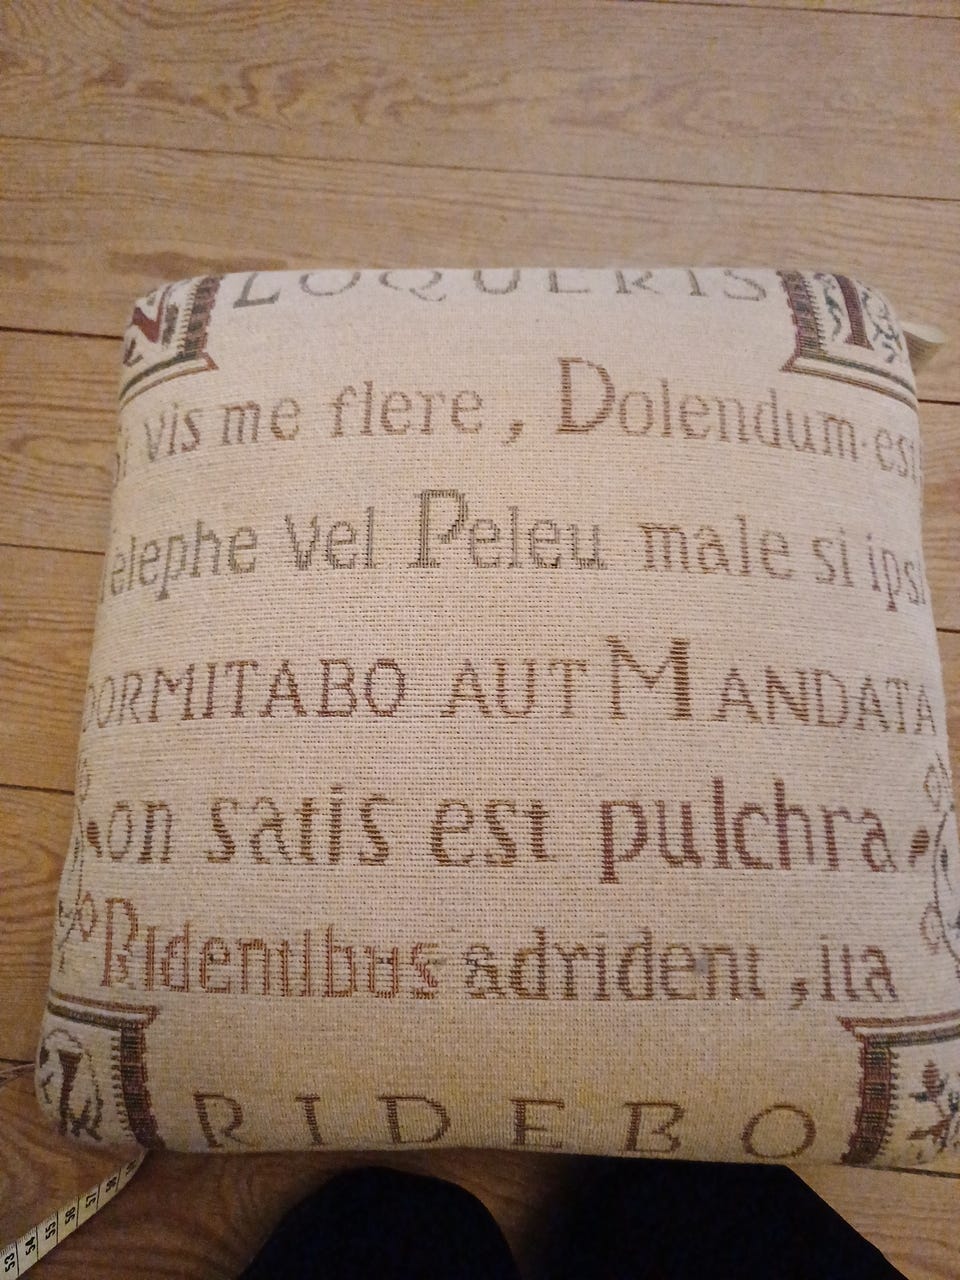 LOQUERIS
si vis me flere, Dolendum est
elephe vel Peleu male si ips
DORMITABO AUT MANDATA
on satis est pulchra
Ridentibus adrident, ita
RIDEBO
53 54 55 56 57 58